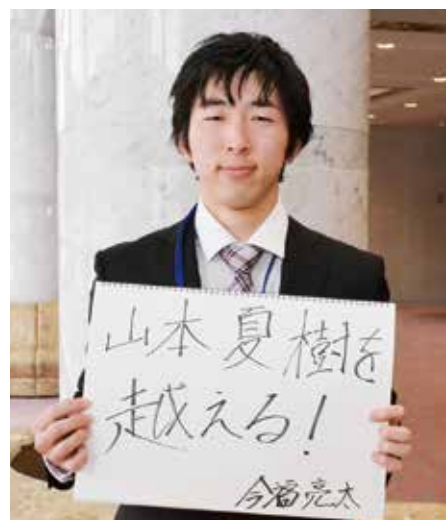 山本夏樹を
越える!
今福亮太